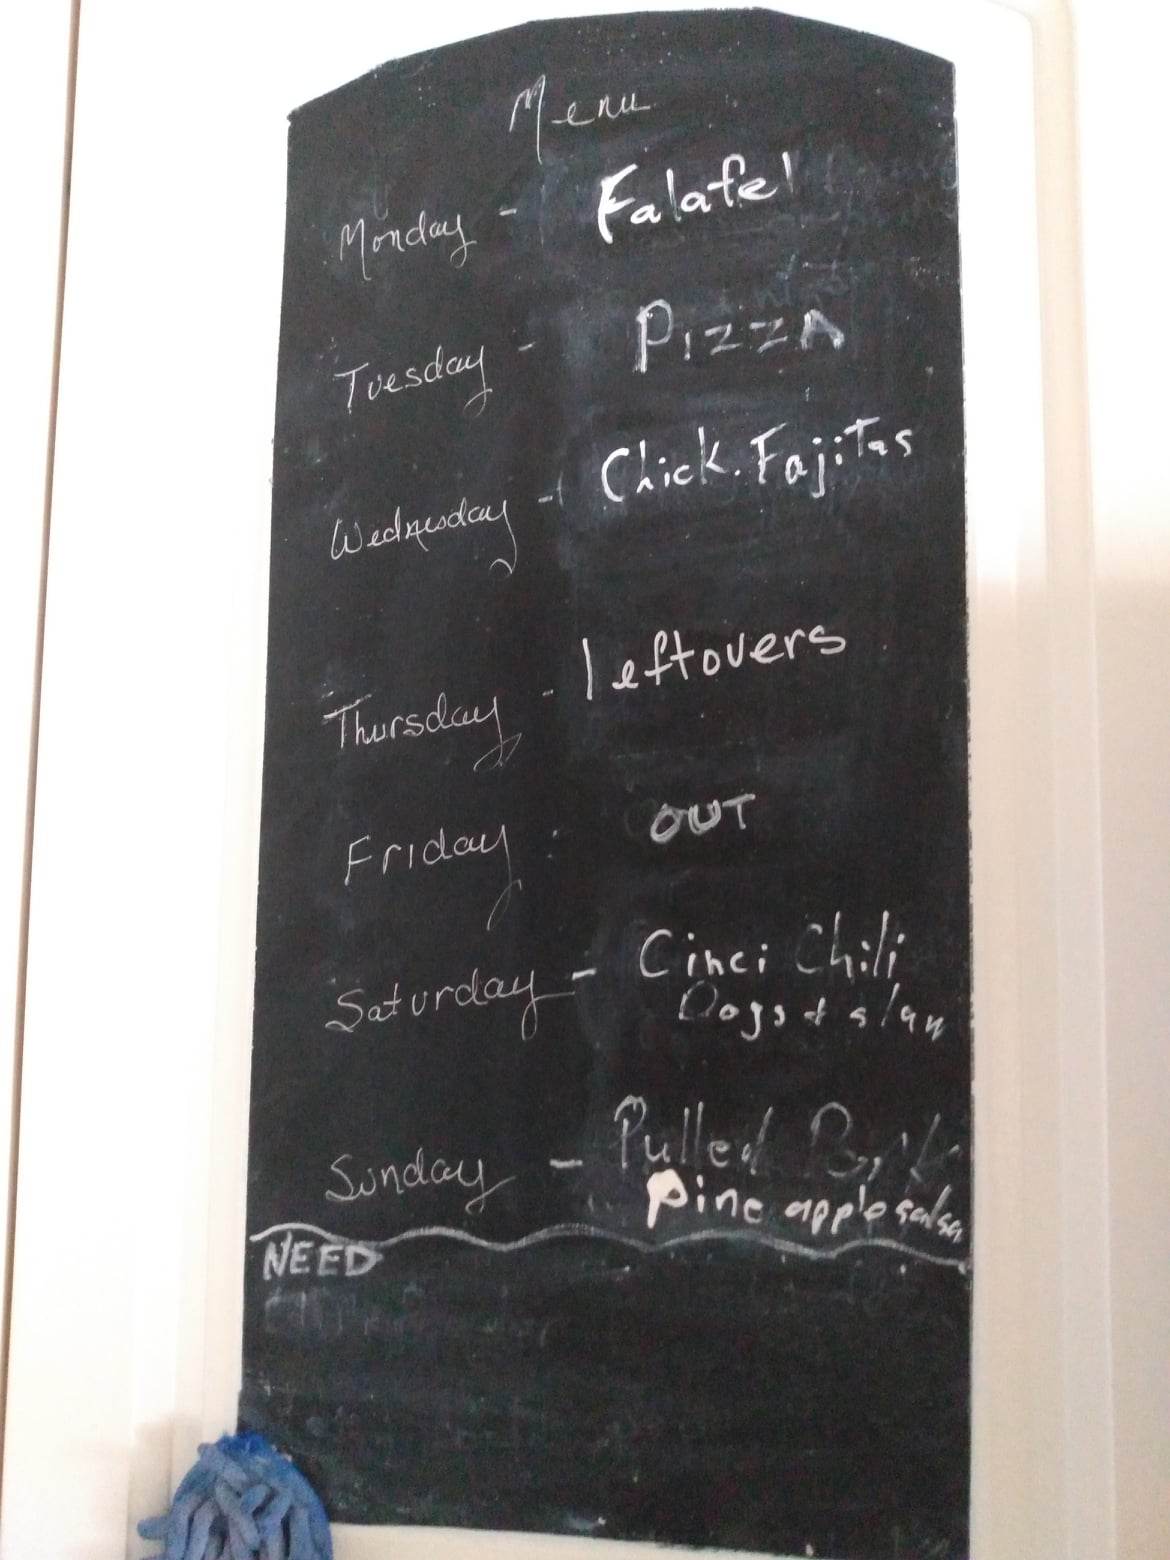 Menu
Monday - Falafel
Tuesday - PIZZA
Wednesday - Chick. Fajitas
Thursday - leftovers
Friday - OUT
Saturday - Cinci Chili
Dogs + slaw
Sunday - Pulled Pork
Pineapple salsa
NEED